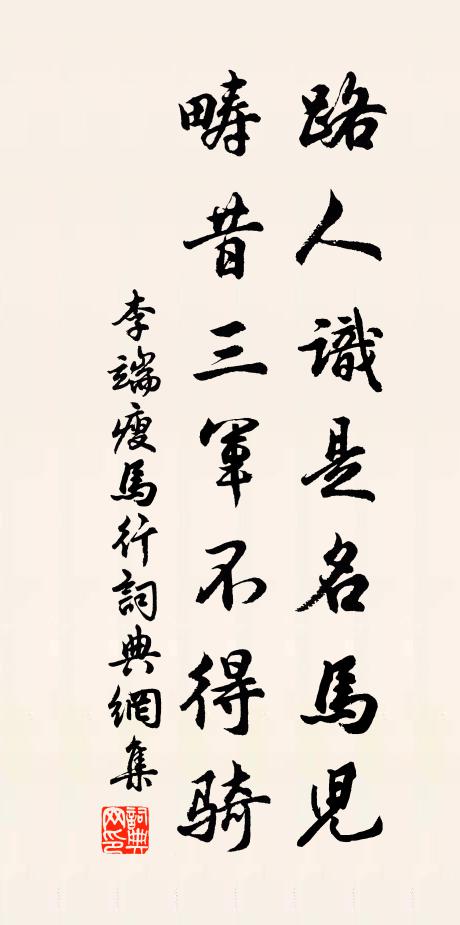 路人識是名馬児
疇昔三軍不得騎
李端瘦馬行詞典網集
詞典网印